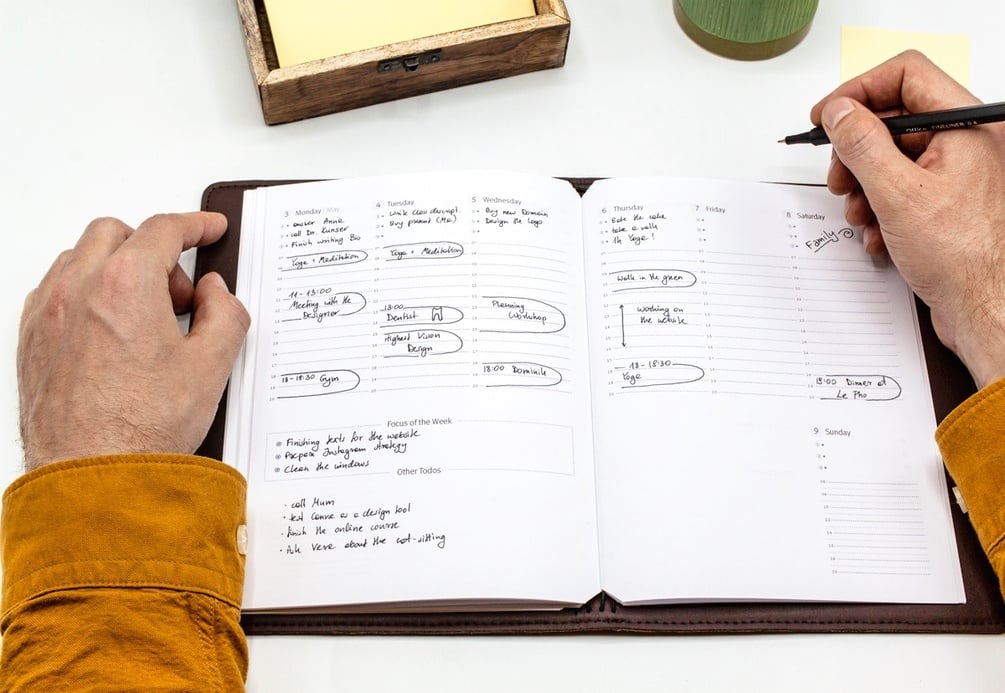 3 Monday / May
answer Anne
call Dr. Kunser
Finish writing Bio
Yoga + Meditation
11 - 13:00
Meeting with the
Designer
18 - 18:30 Gym
4 Tuesday
write descript.
Buy present (Ma)
Yoga + Meditation
13:00
Dentist
Highest Vision
Design
5 Wednesday
Buy new Domain
Design the Logo
Planning
Workshop
18:00 Dominik
Focus of the Week
Finishing texts for the website
Prepare Instagram strategy
Clean the windows
Other Todos
call Mum
test as a design tool
finish the online course
Ask about the cat-sitting
6 Thursday
Bake the cake
take a walk
1h Yoga!
walk in the green
working on
the website
18 - 18:30
Yoga
7 Friday
8 Saturday
Family
18:00 Dinner at
Le Pho
9 Sunday
FINELINER 0.4